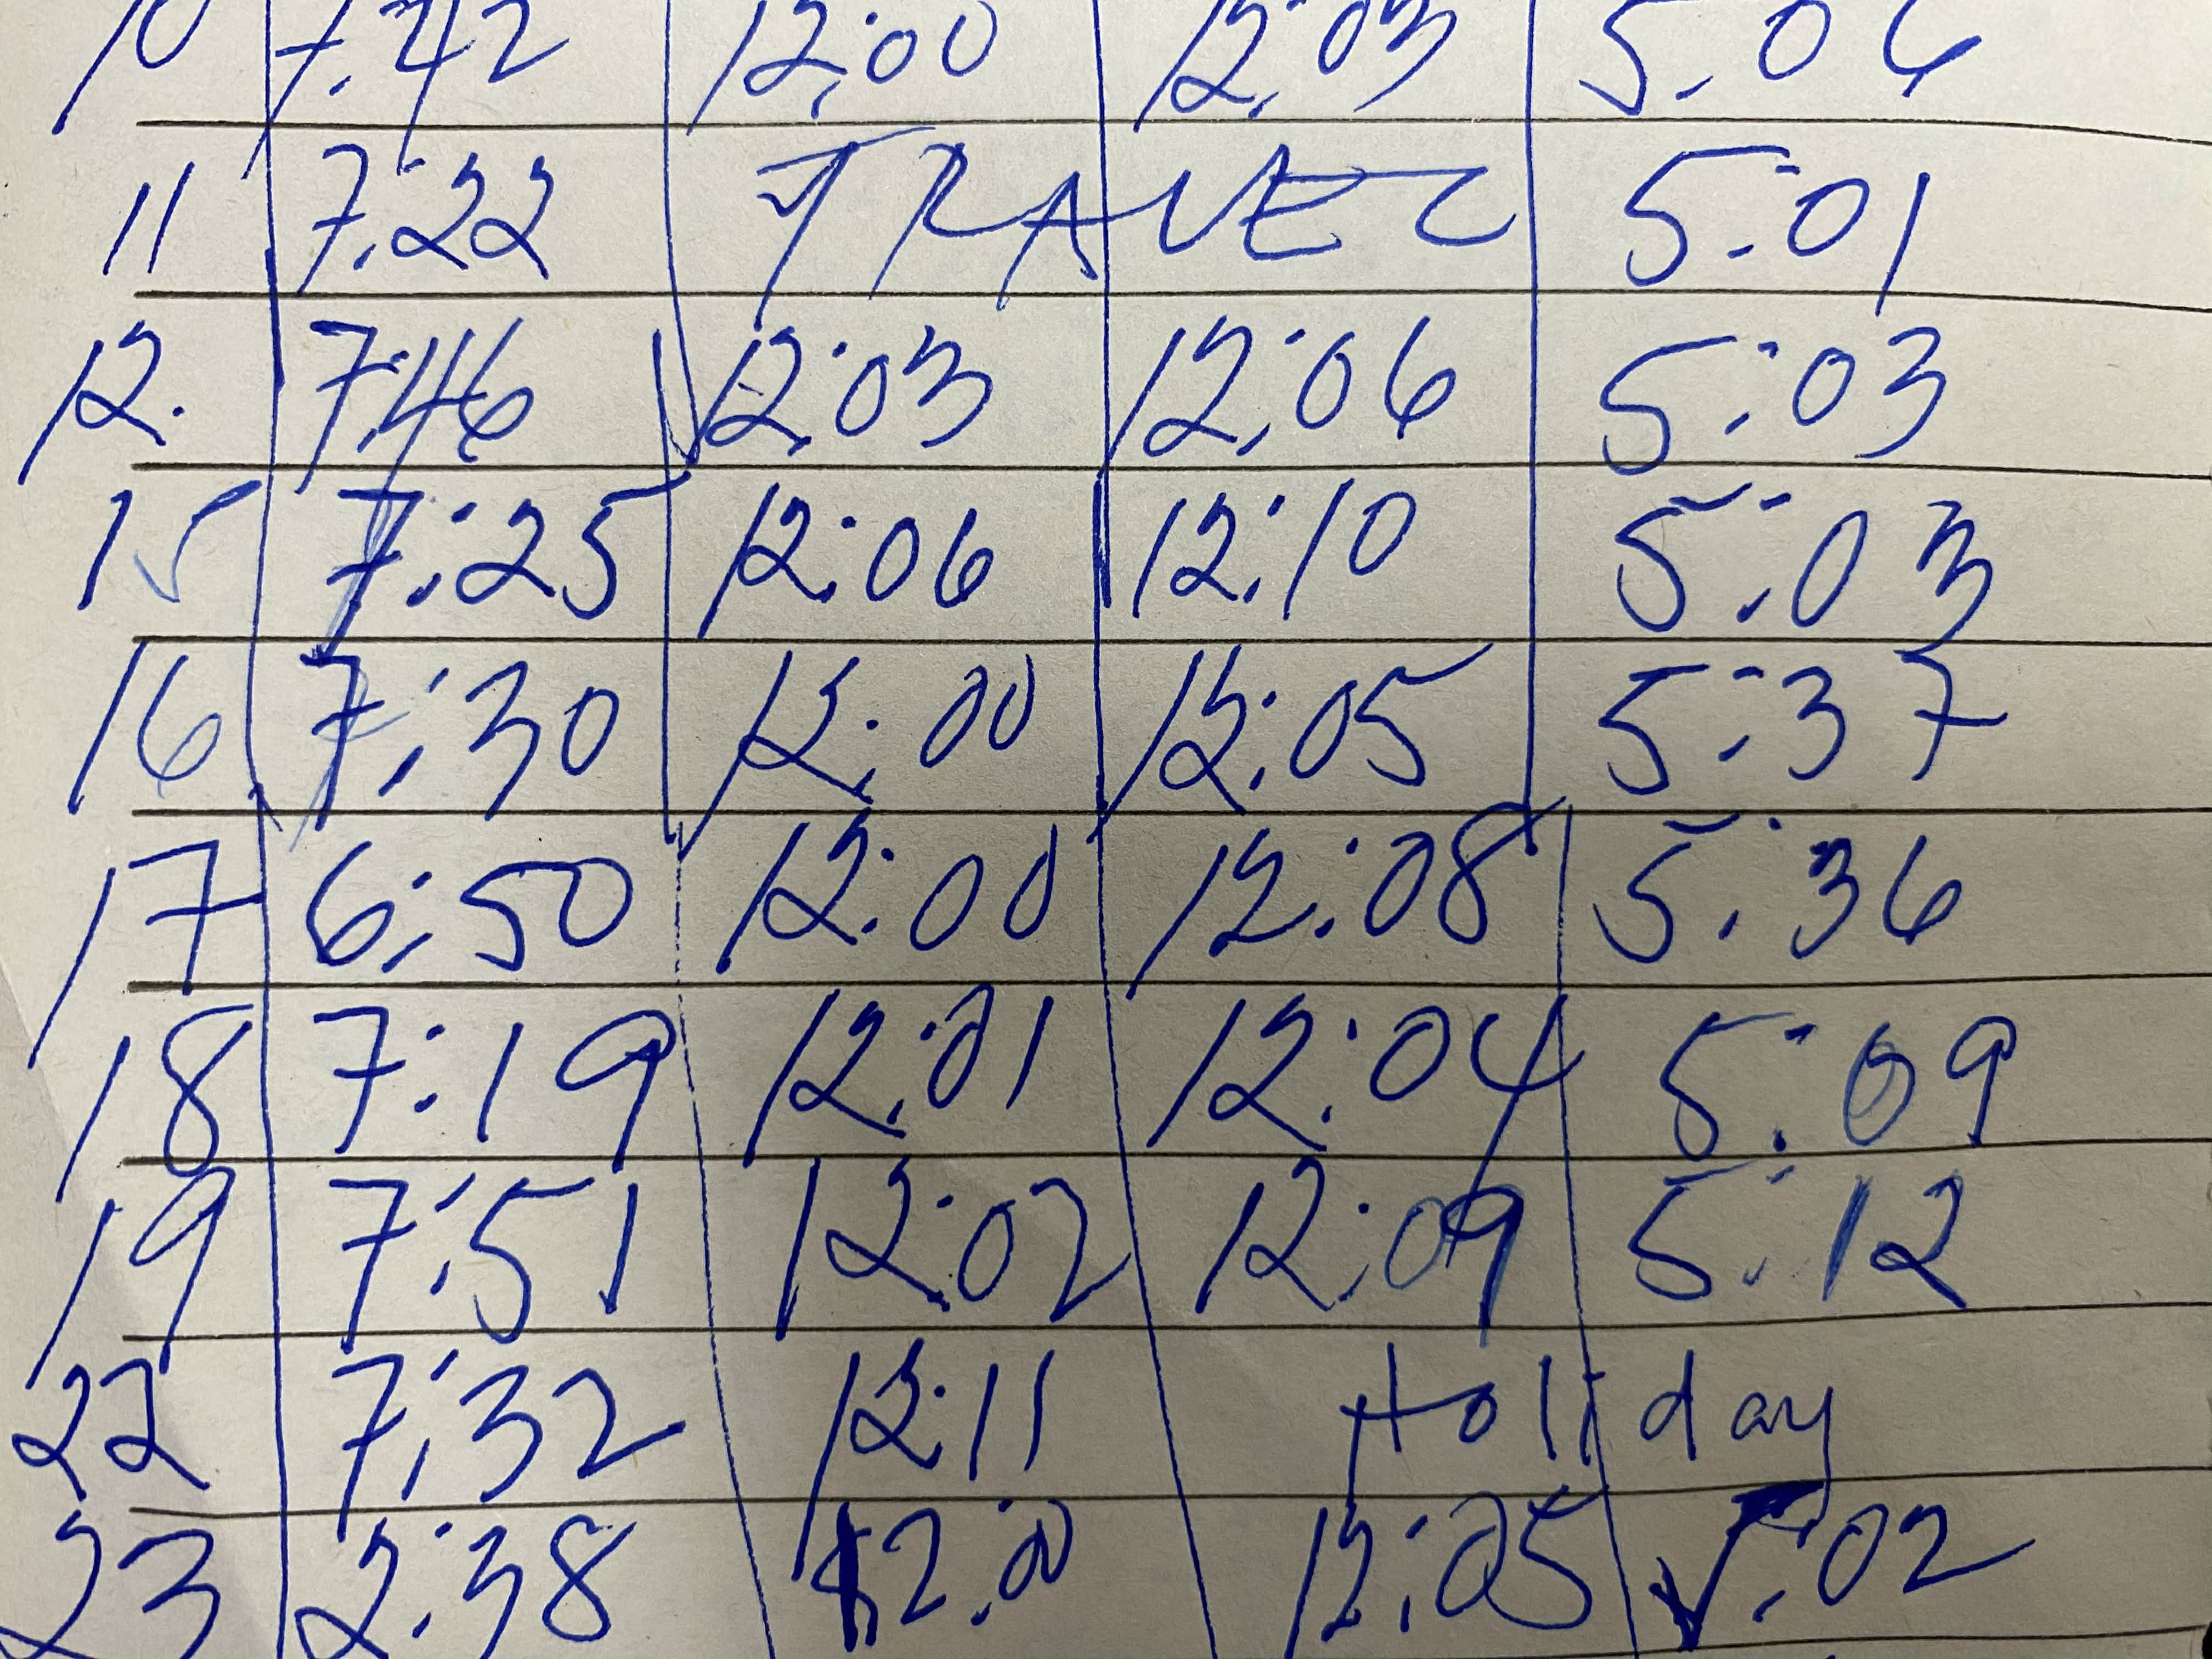 10 7:42 12:00 12:03 5:06
11 7:22 TRAVEL 5:01
12. 7:46 12:03 12:06 5:03
15 7:25 12:06 12:10 5:03
16 7:30 12:00 12:05 5:37
17 6:50 12:00 12:08 5:36
18 7:19 12:01 12:04 5:09
19 7:51 12:02 12:09 5:12
22 7:32 12:11 Holiday
23 2:38 12:00 12:05 5:02